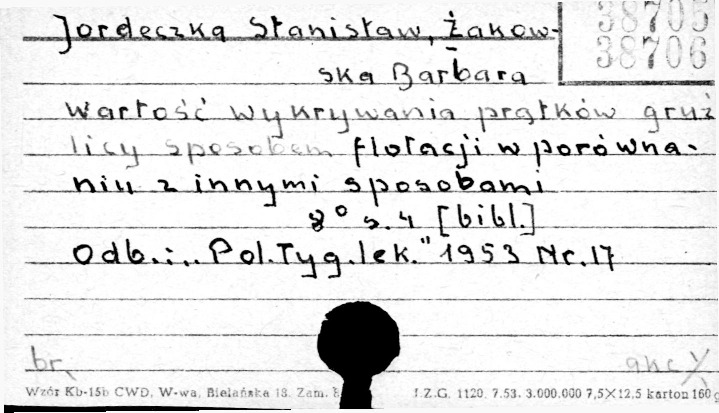 Jordeczka Stanisław, Żakow-
38705
38706
ska Barbara
Wartość wykrywania prątków gruź
licy sposobem flotacji w porówna-
niu z innymi sposobami
8° s. 4 [bibl.]
Odb.: „Pol. Tyg. lek." 1953 Nr. 17
br.
akc
Wzór Kb-15b CWD, W-wa, Bielańska 18. Zam.
I.Z.G. 1120. 7.53. 3.000.000 7,5×12,5 karton 160 g